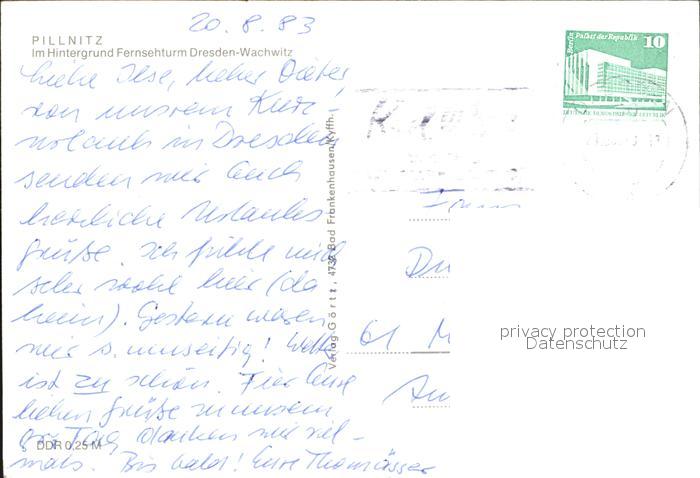 20.8.83
PILLNITZ
Im Hintergrund Fernsehturm Dresden-Wachwitz
Liebe Ilse, lieber Dieter,
von unserem Kurz-
urlaub in Dresden
senden wir Euch
herzliche Urlaubs
grüße. Ich fühle mich
sehr wohl hier (da
heim). Gestern waren
wir s. unseitig! Wetter
ist zu schön. Für Eure
lieben Grüße zu unserem
Tag danken wir viel-
mals. Bis bald! Eure
DDR 0,25 M
Verlag Görtz, 4732 Bad Frankenhausen/Kyffh.
Berlin Palast der Republik
10
DEUTSCHE DEMOKRATISCHE REPUBLIK
61 M
privacy protection
Datenschutz